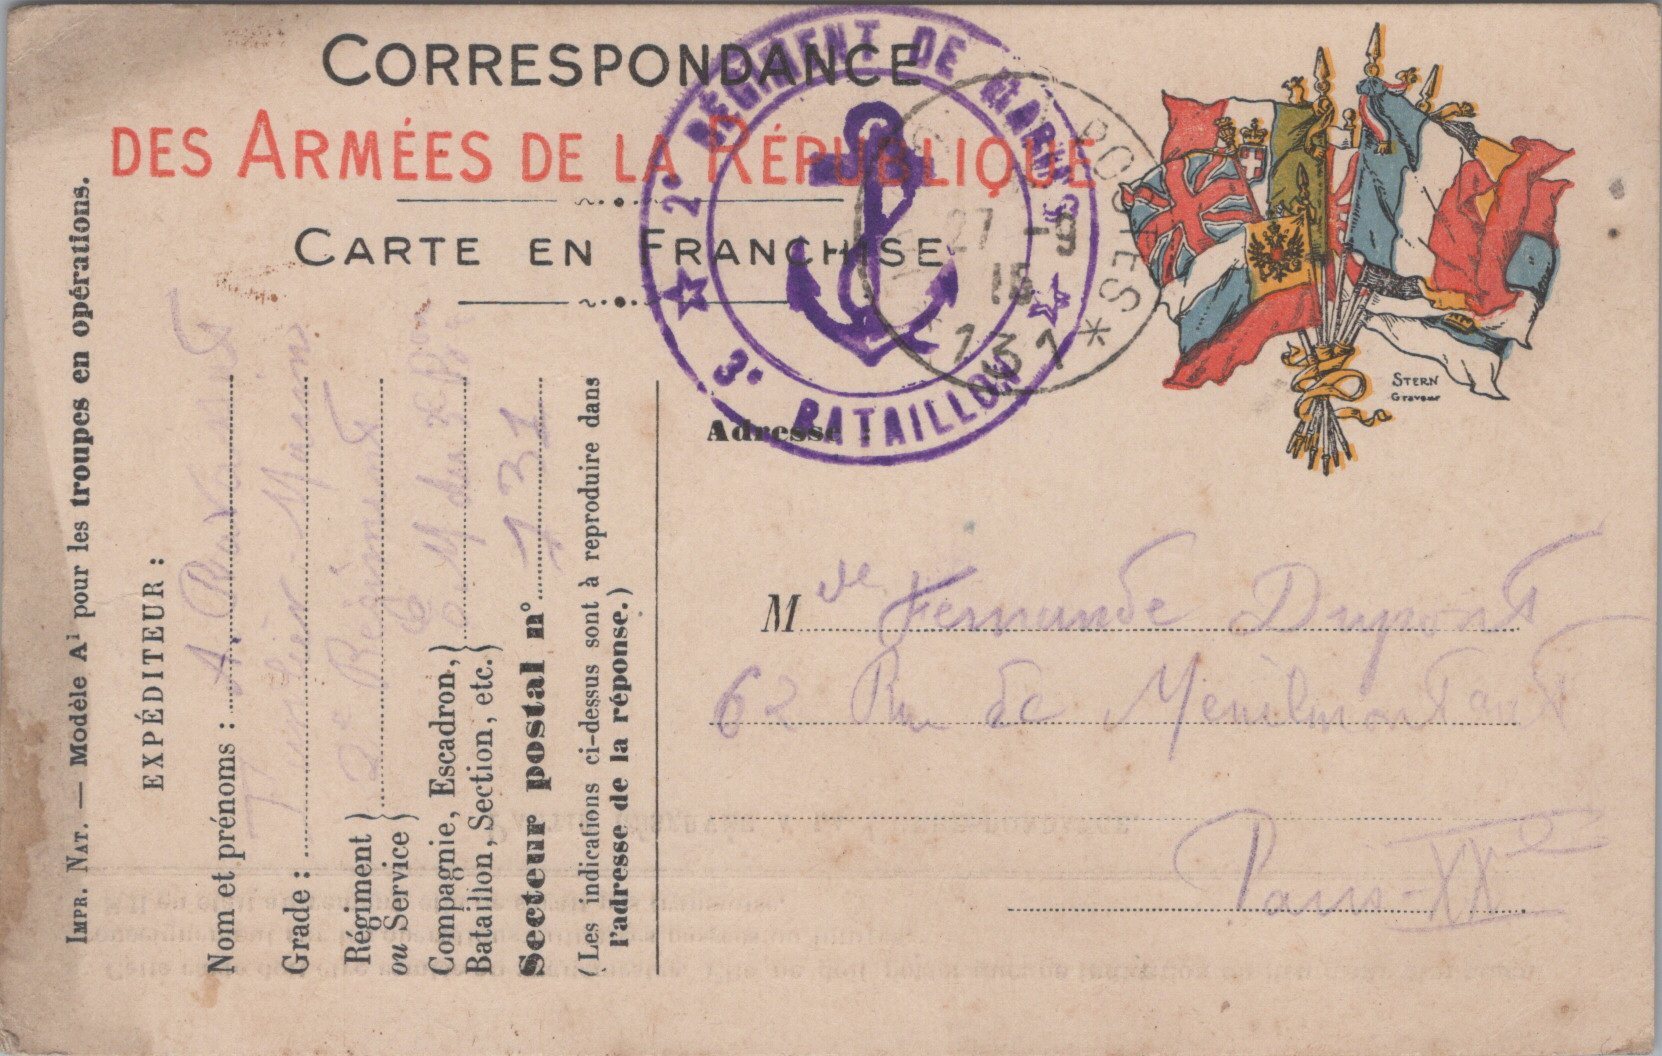 CORRESPONDANCE
DES ARMÉES DE LA RÉPUBLIQUE
CARTE EN FRANCHISE
2e RÉGIMENT DE MARINS
3e BATAILLON
POSTES
27
16
131 *
STERN
Graveur
Adresse :
Mde Fernande Dupont
62 Rue de Menilmontant
Paris-XXe
IMPR. NAT. — Modèle A1 pour les troupes en opérations.
EXPÉDITEUR :
Nom et prénoms : A.
Grade : Marins
Régiment
ou Service } 2e Régiment
Compagnie, Escadron,
Bataillon, Section, etc. }
Secteur postal n° 131
(Les indications ci-dessus sont à reproduire dans
l'adresse de la réponse.)